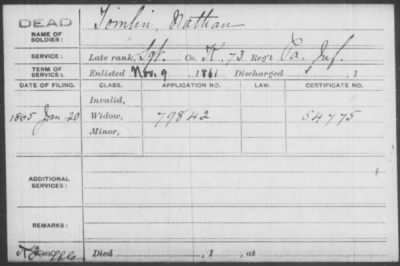 DEAD
NAME OF SOLDIER: Tomlin, Nathan
SERVICE: Late rank, Sgt. Co. K, 73 Reg't Pa. Inf.
TERM OF SERVICE: Enlisted Nov. 9, 1861 Discharged , 1
DATE OF FILING. CLASS. APPLICATION NO. LAW. CERTIFICATE NO.
Invalid,
1865 Jan. 20 Widow, 79842 54775
Minor,
ADDITIONAL SERVICES:
REMARKS:
Died , 1 , at